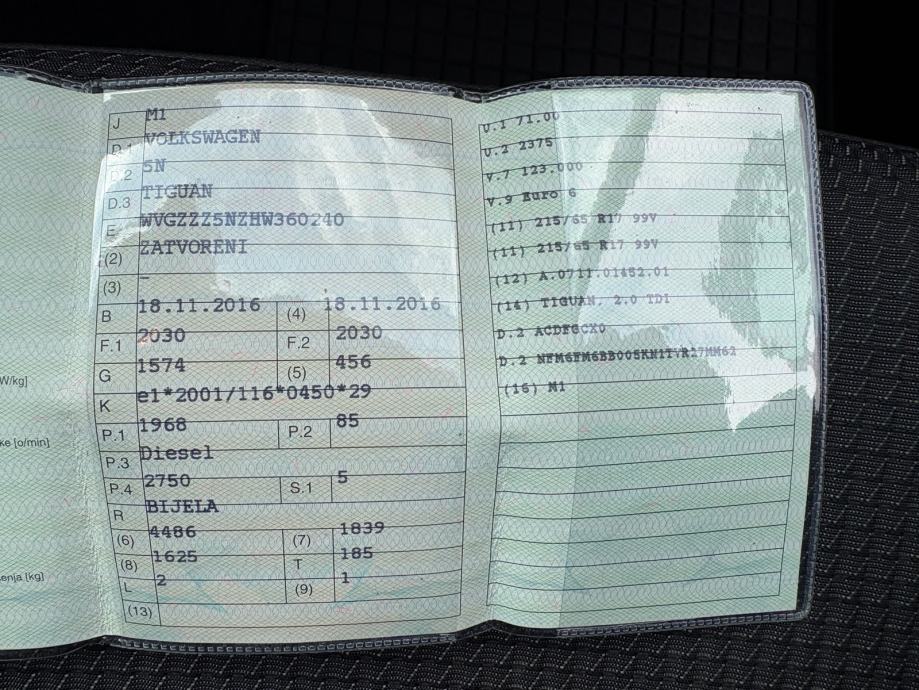 W/kg]
ke [o/min]
enja [kg]
J M1
D.1 VOLKSWAGEN
D.2 5N
D.3 TIGUAN
E WVGZZZ5NZHW360240
(2) ZATVORENI
(3) -
B 18.11.2016 (4) 18.11.2016
F.1 2030 F.2 2030
G 1574 (5) 456
K e1*2001/116*0450*29
P.1 1968 P.2 85
P.3 Diesel
P.4 2750 S.1 5
R BIJELA
(6) 4486 (7) 1839
(8) 1625 T 185
L 2 (9) 1
(13)
U.1 71.00
U.2 2375
V.7 123.000
V.9 Euro 6
(11) 215/65 R17 99V
(11) 215/65 R17 99V
(12) A.0711.01452.01
(14) TIGUAN, 2.0 TDI
D.2 ACDFGCX0
D.2
(16) M1